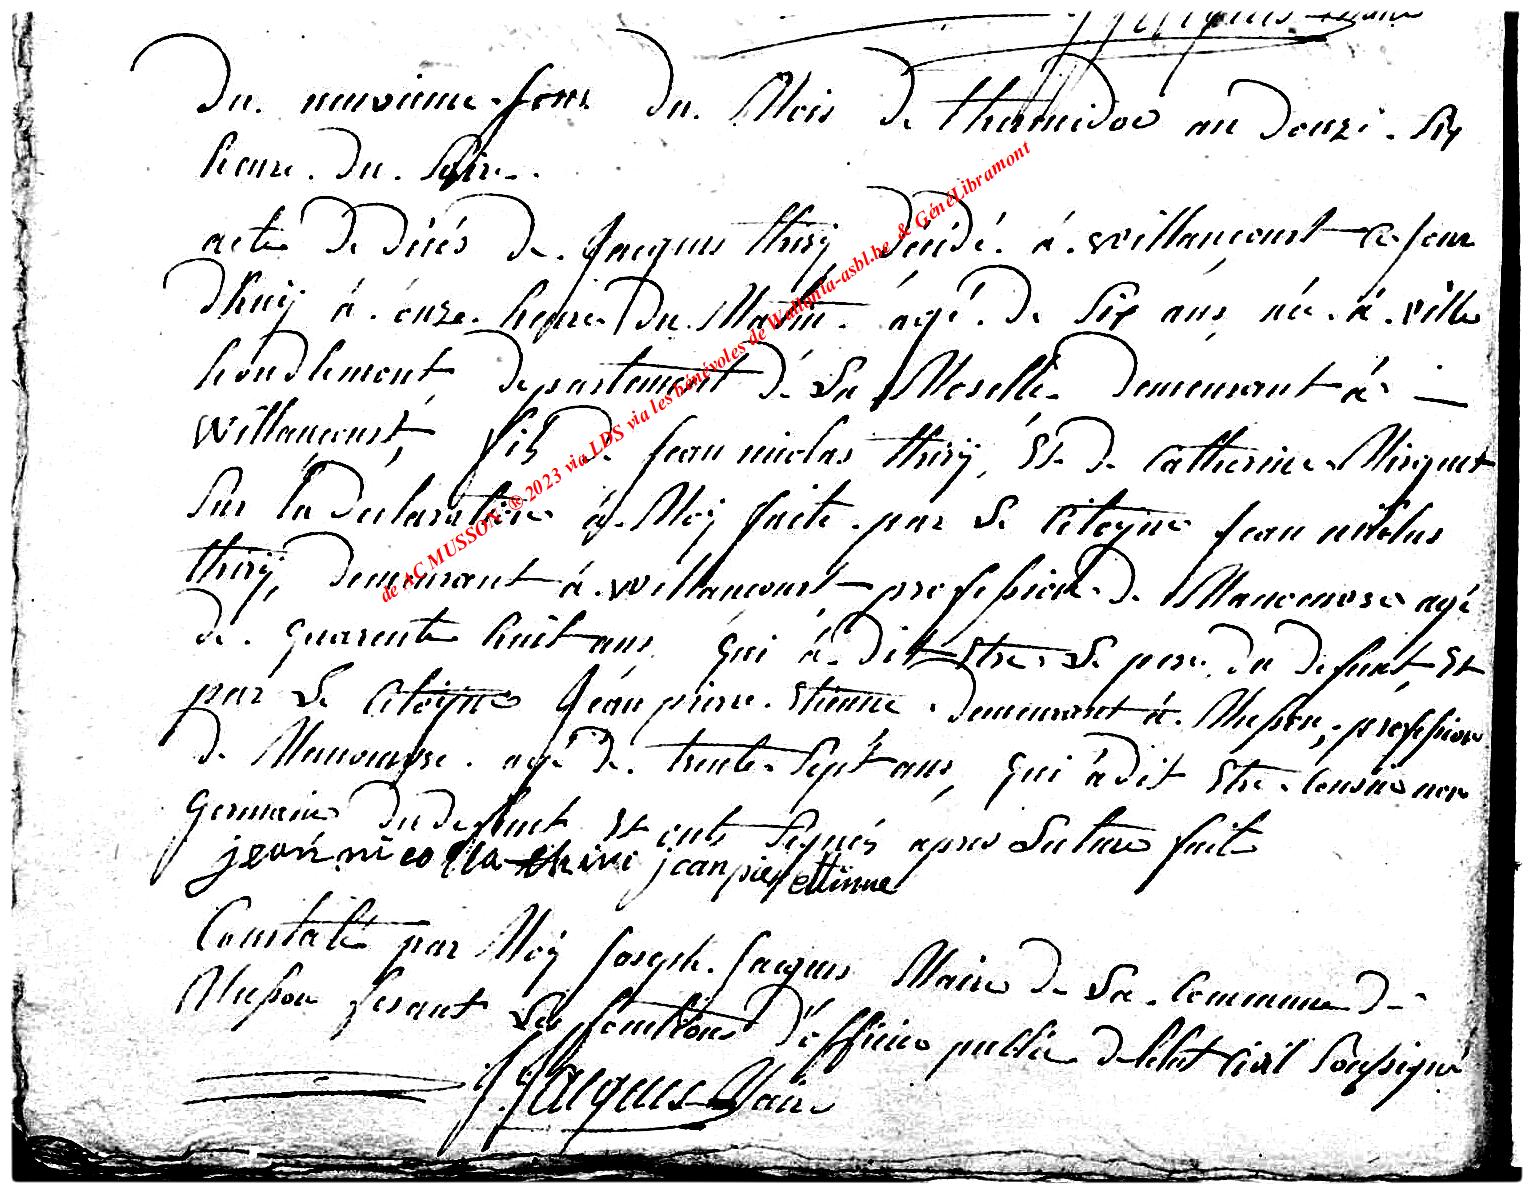 Jacques maire
Du neuvieme jour du Mois de thermidor an Douze. Six
heure. du. Soire.
acte De décés de. Jacques thiry décédé. à. willancourt ce jour
dhuÿ à. onze. heure du. Matin. âgé. de Six ans, née. à. ville
houdlemont, departement dé La Moselle demeurant à —
willancourt, fils de jean nicolas thirÿ, Et de Catherine Mirguet
Sur la declaration à. Moÿ faite. par Le Citoyne jean nicolas
thirÿ, demeurant à. willancourt profession de Manoeuvre agé
de. quarente huit ans, qui à dit Etre Le pere du defunt, Et
par Le Citoÿne Jean pierre Etienne. demeurant à. Musson, profession
de Manoeuvre. agé de. trente Sept ans, qui à dit Etre Cousin
Germain du defunct Et onts Signés apres Lecture fait
jean nicolla thiri jean pier ettinne
Constaté par Moÿ joseph. jacques Maire de La. Commune de
Musson fesant Les fonctions d'officier public de l'etat Civil Soussigné
J. Jacques Maire
de AC MUSSON ® 2023 via LDS via les bénévoles de Wallonia-asbl.be & GénéLibramont